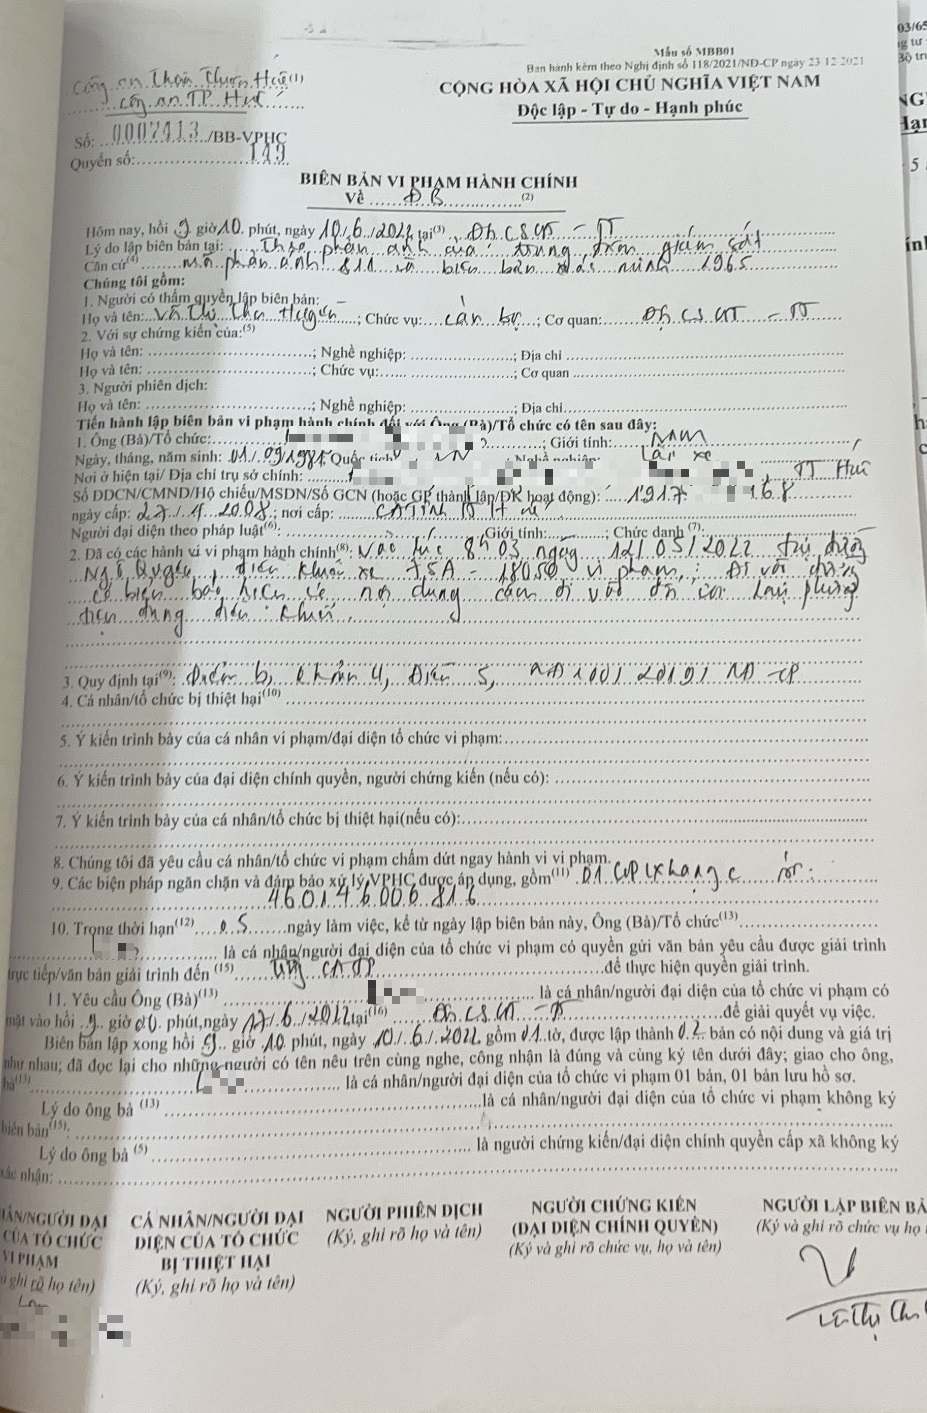 Mẫu số MBB01
Ban hành kèm theo Nghị định số 118/2021/NĐ-CP ngày 23-12-2021
Công an Thừa Thiên Huế(1)
Công an TP. Huế
CỘNG HÒA XÃ HỘI CHỦ NGHĨA VIỆT NAM
Độc lập - Tự do - Hạnh phúc
Số: 0007413/BB-VPHC
Quyển số: 149
BIÊN BẢN VI PHẠM HÀNH CHÍNH
Về ĐB (2)
Hôm nay, hồi 9 giờ 10 phút, ngày 10/6/2022 tại(3) Đội CSGT - TT
Lý do lập biên bản tại: Theo phản ánh của trung tâm giám sát
Căn cứ(4) mã phản ánh 811 và biên bản xác minh 1965
Chúng tôi gồm:
1. Người có thẩm quyền lập biên bản:
Họ và tên: Văn Thị Thu Huyền; Chức vụ: Cán bộ; Cơ quan: Đội CSGT - TT
2. Với sự chứng kiến của:(5)
Họ và tên: ; Nghề nghiệp: ; Địa chỉ
Họ và tên: ; Chức vụ: ; Cơ quan
3. Người phiên dịch:
Họ và tên: ; Nghề nghiệp: ; Địa chỉ
Tiến hành lập biên bản vi phạm hành chính đối với Ông (Bà)/Tổ chức có tên sau đây:
1. Ông (Bà)/Tổ chức: ; Giới tính: Nam
Ngày, tháng, năm sinh: 01/09/1981 Quốc tịch VN Nghề nghiệp: Lái xe
Nơi ở hiện tại/ Địa chỉ trụ sở chính: TT Huế
Số ĐDCN/CMND/Hộ chiếu/MSDN/Số GCN (hoặc GP thành lập/ĐK hoạt động): 1917 168
ngày cấp: 27/4/2008; nơi cấp: CA Tỉnh TT Huế
Người đại diện theo pháp luật(6): Giới tính: ; Chức danh(7):
2. Đã có các hành vi vi phạm hành chính(8): Vào lúc 8h03 ngày 12/05/2022 tại đường
Ngô Quyền, điều khiển xe 75A - 18050 vi phạm: Đi vào đường
có biển báo hiệu có nội dung cấm đi vào đối với loại phương
tiện đang điều khiển.
3. Quy định tại(9): Điểm b, Khoản 4, Điều 5, NĐ 100/2019/NĐ-CP
4. Cá nhân/tổ chức bị thiệt hại(10)
5. Ý kiến trình bày của cá nhân vi phạm/đại diện tổ chức vi phạm:
6. Ý kiến trình bày của đại diện chính quyền, người chứng kiến (nếu có):
7. Ý kiến trình bày của cá nhân/tổ chức bị thiệt hại(nếu có):
8. Chúng tôi đã yêu cầu cá nhân/tổ chức vi phạm chấm dứt ngay hành vi vi phạm.
9. Các biện pháp ngăn chặn và đảm bảo xử lý VPHC được áp dụng, gồm(11) 01 GPLX hạng C số:
460146006816
10. Trong thời hạn(12) 05 ngày làm việc, kể từ ngày lập biên bản này, Ông (Bà)/Tổ chức(13)
là cá nhân/người đại diện của tổ chức vi phạm có quyền gửi văn bản yêu cầu được giải trình
trực tiếp/văn bản giải trình đến (15) Trưởng CATP để thực hiện quyền giải trình.
11. Yêu cầu Ông (Bà)(13) là cá nhân/người đại diện của tổ chức vi phạm có
mặt vào hồi 9 giờ 00 phút, ngày 17/6/2022 tại(16) Đội CSGT - TT để giải quyết vụ việc.
Biên bản lập xong hồi 9 giờ 10 phút, ngày 10/6/2022, gồm 01 tờ, được lập thành 02 bản có nội dung và giá trị
như nhau; đã đọc lại cho những người có tên nêu trên cùng nghe, công nhận là đúng và cùng ký tên dưới đây; giao cho ông,
bà(13) là cá nhân/người đại diện của tổ chức vi phạm 01 bản, 01 bản lưu hồ sơ.
Lý do ông bà (13) là cá nhân/người đại diện của tổ chức vi phạm không ký
biên bản(15):
Lý do ông bà (5) là người chứng kiến/đại diện chính quyền cấp xã không ký
xác nhận:
NHÂN/NGƯỜI ĐẠI
CỦA TỔ CHỨC
VI PHẠM
ghi rõ họ tên)
CÁ NHÂN/NGƯỜI ĐẠI
DIỆN CỦA TỔ CHỨC
BỊ THIỆT HẠI
(Ký, ghi rõ họ và tên)
NGƯỜI PHIÊN DỊCH
(Ký, ghi rõ họ và tên)
NGƯỜI CHỨNG KIẾN
(ĐẠI DIỆN CHÍNH QUYỀN)
(Ký và ghi rõ chức vụ, họ và tên)
NGƯỜI LẬP BIÊN BẢ
(Ký và ghi rõ chức vụ họ
Văn Thị Thu